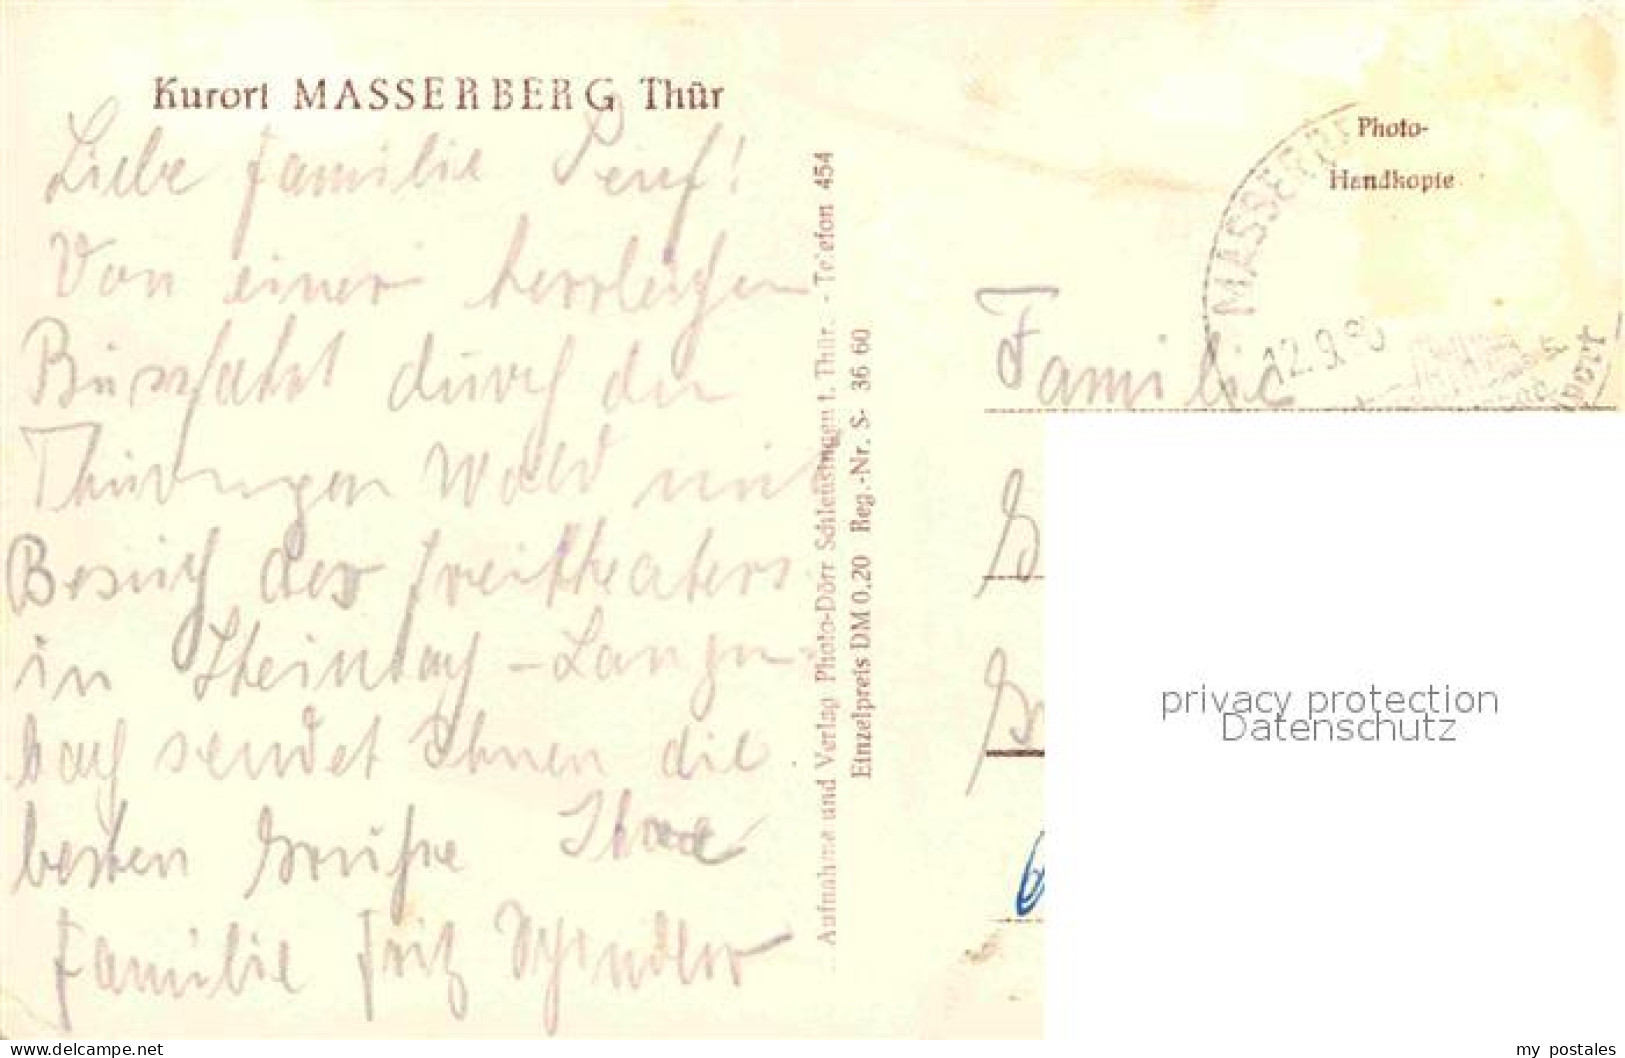 Kurort MASSERBERG Thür
Liebe Familie
Von einer herrlichen
Busfahrt durch den
Thüringen Wald mit
Besuch des Freitheaters
in Steinbach-Langen-
bach sendet Ihnen die
besten Grüße Ihre
Familie Fritz
Aufnahme und Verlag Photo-Dörr Schleusingen i. Thür. - Telefon 454
Einzelpreis DM 0,20 Reg.-Nr. S- 36 60
Photo-
Handkopie
MASSERBE
12.9.
Familie
privacy protection
Datenschutz
www.delcampe.net
my_postales